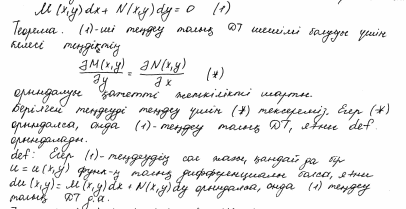 M(x,y)dx + N(x,y)dy = 0 (1)
Теорема. (1)-ші теңдеу толық ДТ шешімі болуы үшін
келесі теңдіктің
∂M(x,y)/∂y = ∂N(x,y)/∂x (*)
орындалуы қажетті жеткілікті шарты.
Берілген теңдеуді теңдеу үшін (*) тексереміз. Егер (*)
орындалса, онда (1)-теңдеу толық ДТ, яғни def.
орындалады.
def: Егер (1)-теңдеудің сол жағы, қандай да бір
u = u(x,y) функ-ң толық дифференциалы болса, яғни
du(x,y) = M(x,y)dx + N(x,y)dy орындалса, онда (1) теңдеу
толық ДТ д.а.